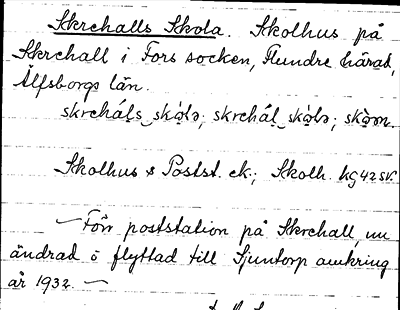 Skrehalls Skola. Skolhus på
Skrehall i Fors socken, Flundre härad,
Älfsborgs län.
skreháls skòlə; skrehál skòlə; skòm.
Skolhus & Postst. ek.; Skolh. kg 42 sv.
— Förr poststation på Skrehall, nu
ändrad o flyttad till Sjuntorp omkring
år 1932. —